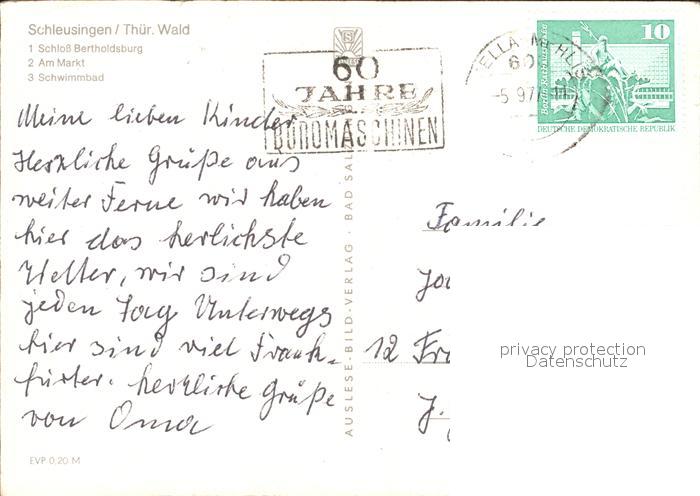 Schleusingen / Thür. Wald
1 Schloß Bertholdsburg
2 Am Markt
3 Schwimmbad
60
JAHRE
BÜROMASCHINEN
10
Berlin Rathausstraße
DEUTSCHE DEMOKRATISCHE REPUBLIK
Meine lieben Kinder
Herzliche Grüße aus
weiter Ferne wir haben
hier das herlichste
Wetter, wir sind
jeden Tag Unterwegs
hier sind viel Frank-
fürter. herzliche Grüße
von Oma
EVP 0,20 M
AUSLESE-BILD-VERLAG · BAD SAL
Familie
12 Fr
J.
privacy protection
Datenschutz